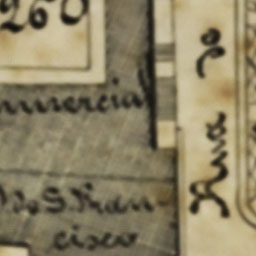 260
mmercial
do S. Fran-
cisco
Rua do